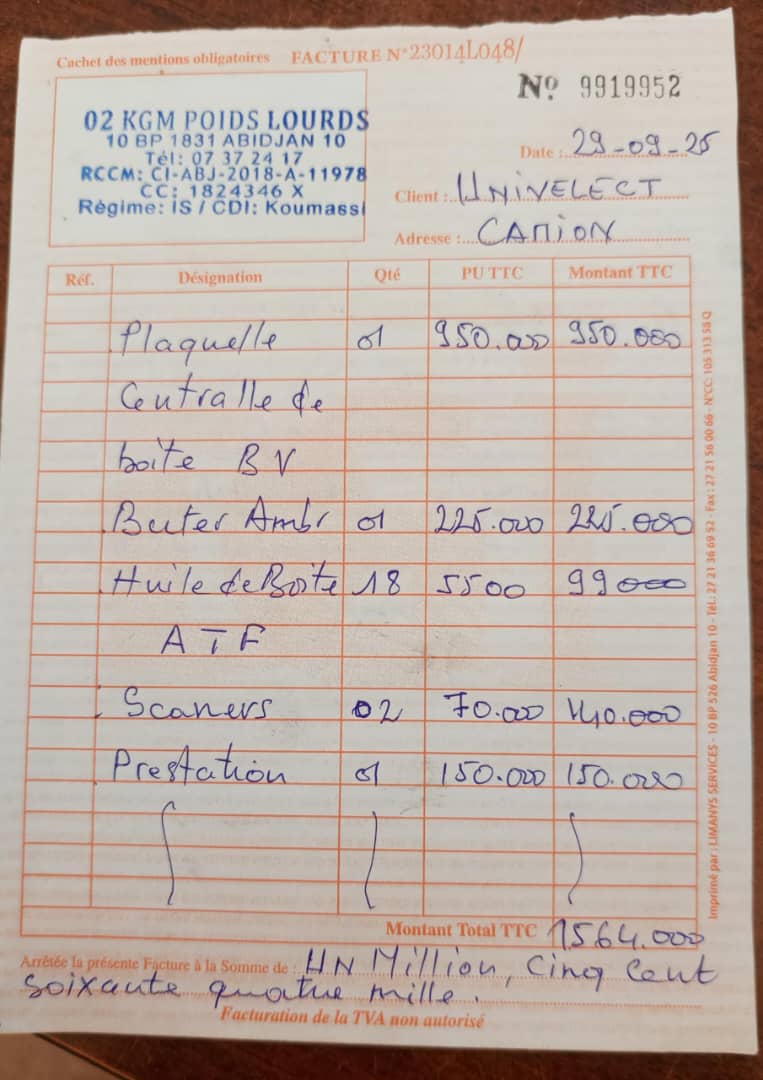 Cachet des mentions obligatoires FACTURE N°23014L048/
Nº 9919952
02 KGM POIDS LOURDS
10 BP 1831 ABIDJAN 10
Tél: 07 37 24 17
RCCM: CI-ABJ-2018-A-11978
CC: 1824346 X
Régime: IS / CDI: Koumassi
Date : 29-09-25
Client : UNIVELECT
Adresse : CAMION
Réf. Désignation Qté PU TTC Montant TTC
Plaquelle 01 950.000 950.000
Centralle de
boite BV
Buter Ambr 01 225.000 225.000
Huile de Boite 18 5500 99000
ATF
Scaners 02 70.000 140.000
Prestation 01 150.000 150.000
Montant Total TTC 1564.000
Arrêtée la présente Facture à la Somme de : UN Million, Cinq Cent
soixante quatre mille.
Facturation de la TVA non autorisé
Imprimé par : LIMANYS SERVICES - 10 BP 526 Abidjan 10 - Tél.: 27 21 36 69 52 - Fax : 27 21 56 00 66 - N°CC: 105 313 58 Q